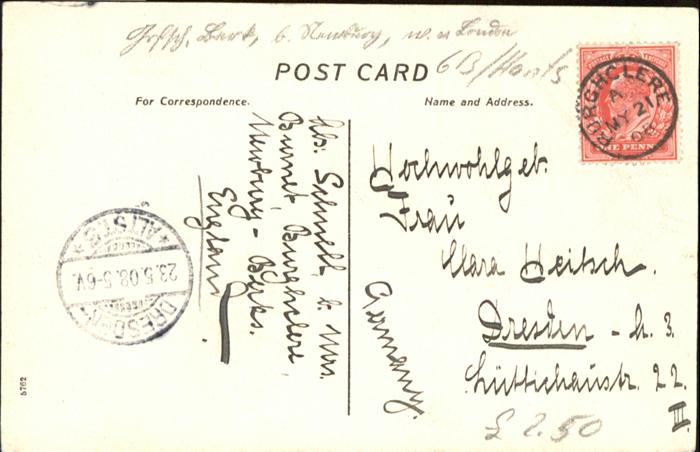 Grfsch. Berk, b. Newbury, w. v. London
6B/Hants
POST CARD
For Correspondence.
Name and Address.
BURGHCLERE
A
MY 21
08
ONE PENNY
Abs: Schmidt b. Mrs.
Burnet, Burghclere,
Newbury - Berks.
England
Hochwohlgeb.
Frau
Clara Heitsch.
Dresden - A. 3.
Lüttichaustr. 22
II.
Germany.
ALTST
23.5.08. 5-6V.
DRESDEN
5762
£ 2.50